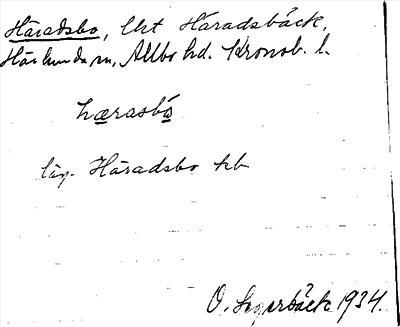 Häradsbo, lht Häradsbäck,
Härlunda sn, Allbo hd. Kronob. l.
hærasbo
läg. Häradsbo hb
O. Segerbäck 1934.